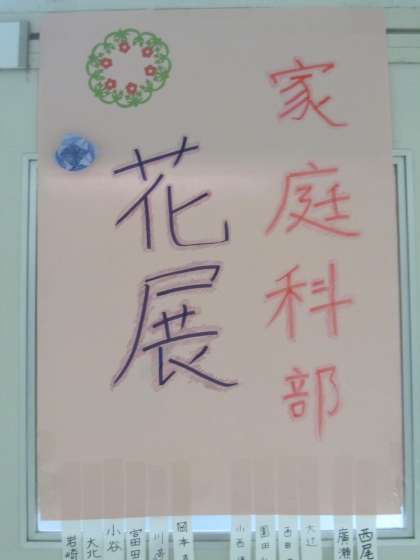 家庭科部
花展
西尾
廣瀬
大辻
西田
園田
小西
岡本
川邊
富田
小谷
大北
岩崎